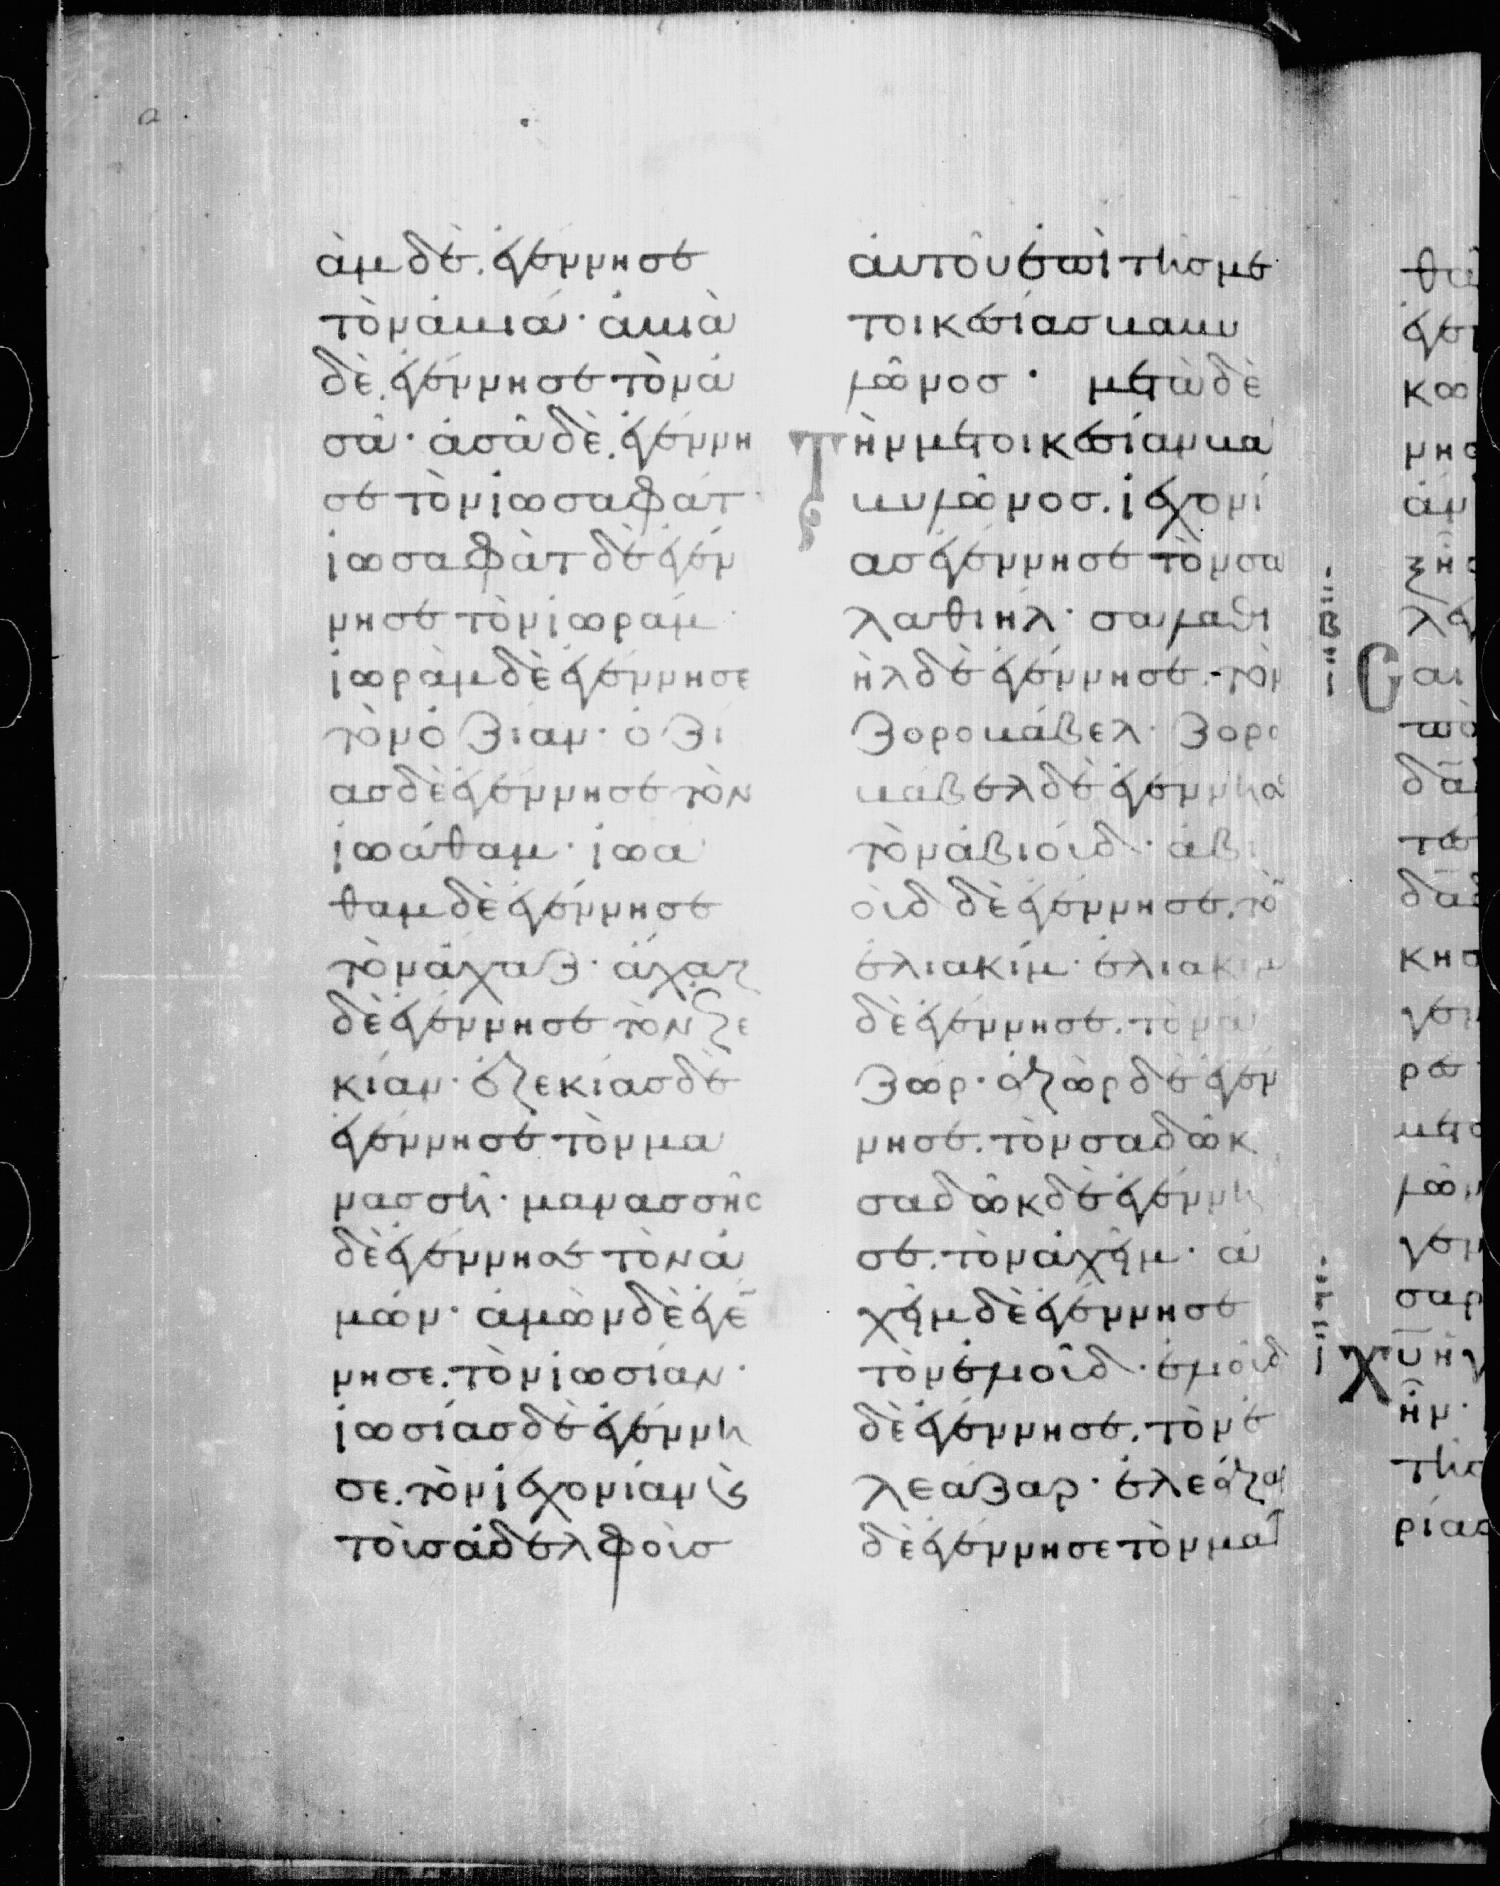 ὰμ δὲ ἐγέννησε
τὸν ἀβιά· ἀβιὰ
δὲ ἐγέννησε τὸν ἀ
σᾶ· ἀσᾶ δὲ ἐγέννη
σε τὸν ἰωσαφάτ·
ἰωσαφὰτ δὲ ἐγέν
νησε τὸν ἰωράμ·
ἰωρὰμ δὲ ἐγέννησε
τὸν ὀζίαν· ὀζί
ασ δὲ ἐγέννησε τὸν
ἰωάθαμ· ἰωά
θαμ δὲ ἐγέννησε
τὸν ἄχαζ· ἄχαζ
δὲ ἐγέννησε τὸν ἐζε
κίαν· ἐζεκίασ δὲ
ἐγέννησε τὸν μα
νασσῆ· μανασσῆσ
δὲ ἐγέννησε τὸν ἀ
μών· ἀμὼν δὲ ἐγέ̄
νησε τὸν ἰωσίαν·
ἰωσίασ δὲ ἐγέννη
σε τὸν ἰεχονίαν ϗ
τοὺσ ἀδελφοὺσ
αὐτοῦ ἐπὶ τῆσ με
τοικεσίασ βαβυ
λῶνοσ· μετὰ δὲ
τὴν μετοικεσίαν βα
βυλῶνοσ ἰεχονί
ασ ἐγέννησε τὸν σα
λαθιήλ· σαλαθι
ὴλ δὲ ἐγέννησε τὸν
ζοροβάβελ· ζορο
βάβελ δὲ ἐγέννησε
τὸν ἀβιούδ· ἀβι
οὺδ δὲ ἐγέννησε τὸ̄
ἐλιακίμ· ἐλιακὶμ
δὲ ἐγέννησε τὸν ἀ
ζώρ· ἀζὼρ δὲ ἐγέν
νησε τὸν σαδῶκ
σαδῶκ δὲ ἐγέννη
σε τὸν ἀχήμ· ἀ
χὴμ δὲ ἐγέννησε
τὸν ἐλιοῦδ· ἐλιοὺδ
δὲ ἐγέννησε τὸν ἐ
λεάζαρ· ἐλεάζαρ
δὲ ἐγέννησε τὸν ματ